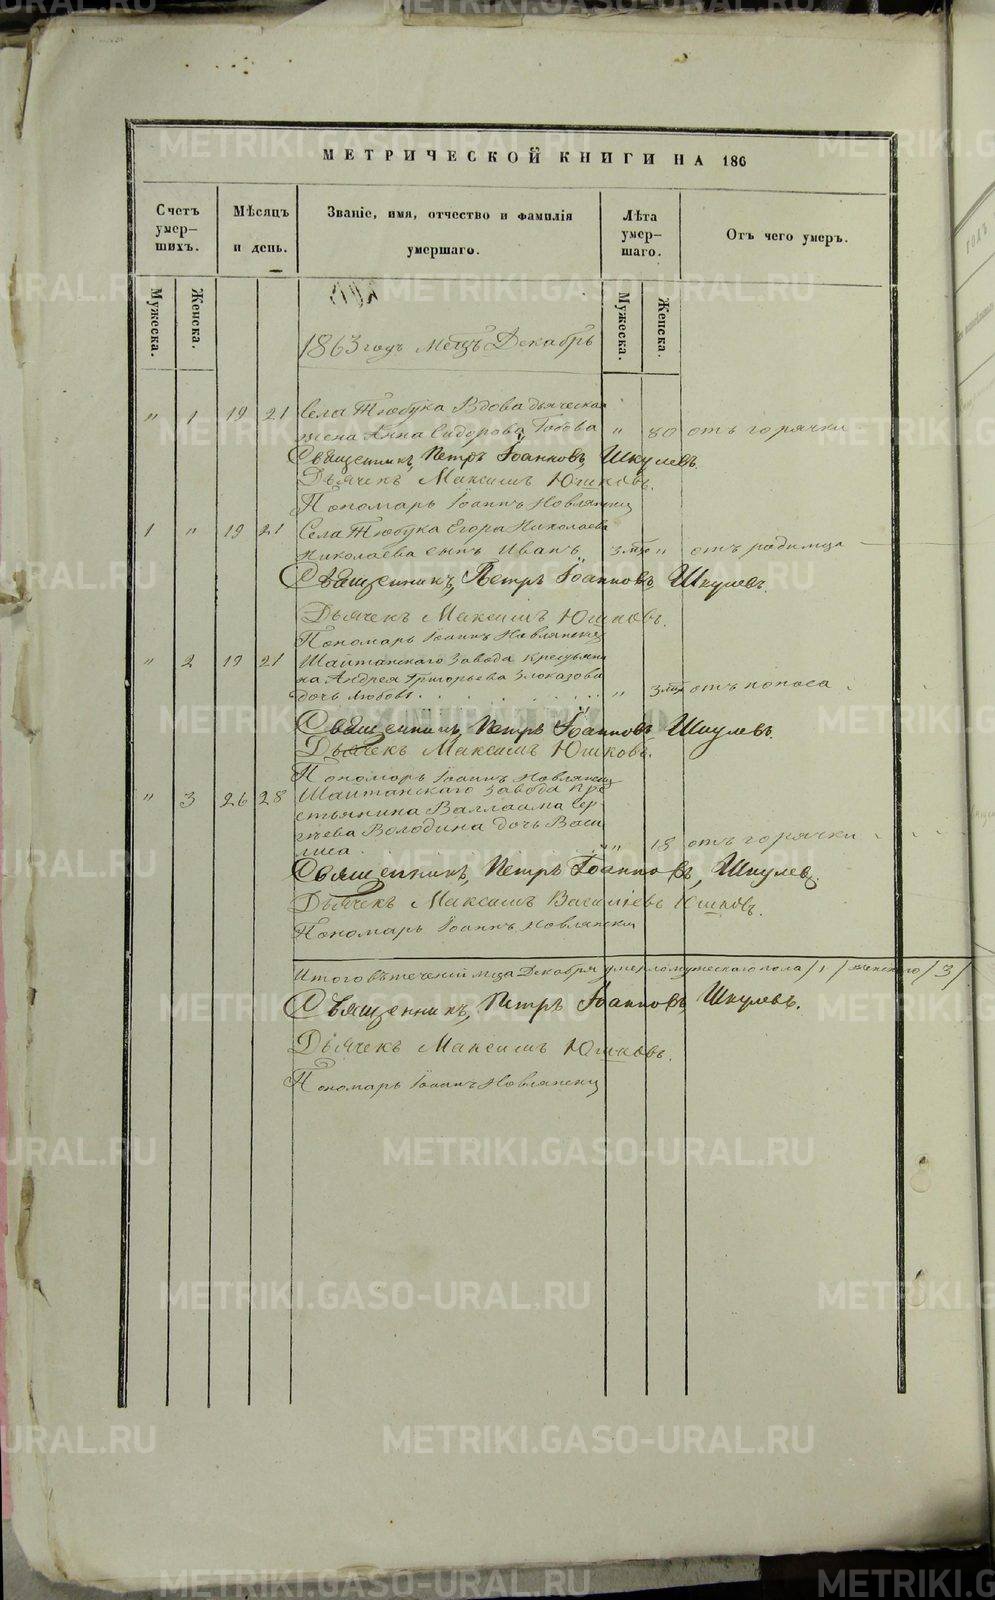 МЕТРИЧЕСКОЙ КНИГИ НА 186
Счетъ умер- шихъ.
Мѣсяцъ и день.
Званіе, имя, отчество и фамилія умершаго.
Лѣта умер- шаго.
Отъ чего умеръ.
Мужеска. Женска. Мужеска. Женска.
1863 годъ Мсцъ Декабрь
" 1 19 21 Села Тюбука Вдова дьяческая
жена Анна Сидорова " 80 отъ горячки
Священникъ, Петръ Іоанновъ, Шкулевъ.
Дьячекъ Максимъ Юшковъ.
Пономарь Іоаннъ Новлянски
1 " 19 21 Села Тюбука Егора Николаева
Николаева сынъ Иванъ 3 " отъ родимца
Священникъ, Петръ Іоанновъ, Шкулевъ.
Дьячекъ Максимъ Юшковъ.
Пономарь Іоаннъ Новлянски
" 2 19 21 Шайтанскаго Завода Крестьяни
на Андрея Григорьева Злоказова
дочь Любовь " 3 отъ поноса
Священникъ, Петръ Іоанновъ Шкулевъ.
Дьячекъ Максимъ Юшковъ.
Пономарь Іоаннъ Новлянски
" 3 26 28 Шайтанскаго Завода Кре
стьянина Валлаама Сер-
гѣева Володина дочь Васи
лиса " 18 отъ горячки
Священникъ, Петръ Іоанновъ, Шкулев.
Дьячекъ Максимъ Василіевъ Юшковъ.
Пономарь Іоаннъ Новлянски
Итого въ теченіи мца Декабря умерло мужескаго пола /1/ женскаго /3/
Священникъ, Петръ Іоанновъ, Шкулевъ.
Дьячекъ Максимъ Юшковъ.
Пономарь Іоаннъ Новлянски
METRIKI.GASO-URAL.RU